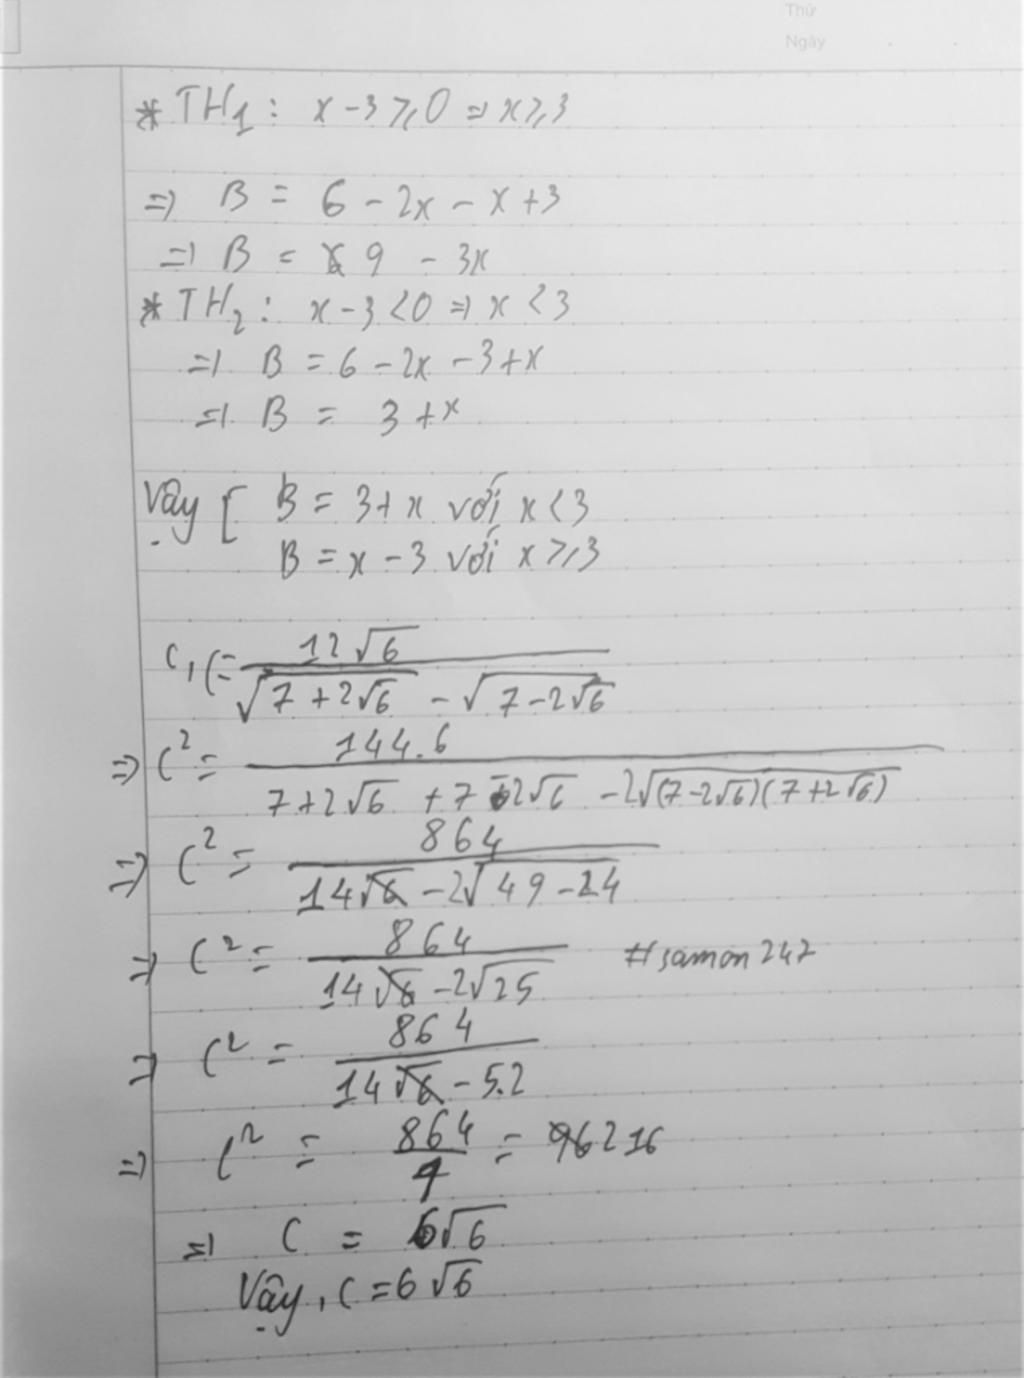 Thứ
Ngày
* TH1: x - 3 ⩾ 0 => x ⩾ 3
=> B = 6 - 2x - x + 3
=> B = 9 - 3x
* TH2: x - 3 < 0 => x < 3
=> B = 6 - 2x - 3 + x
=> B = 3 + x
Vậy [ B = 3 + x với x < 3
B = x - 3 với x ⩾ 3
C, C = 12√6 / (√(7 + 2√6) - √(7 - 2√6))
=> C² = 144.6 / (7 + 2√6 + 7 - 2√6 - 2√((7 - 2√6)(7 + 2√6)))
=> C² = 864 / (14 - 2√(49 - 24))
=> C² = 864 / (14 - 2√25) #samon247
=> C² = 864 / (14 - 5.2)
=> C² = 864 / 4 = 216
=> C = 6√6
Vậy, C = 6√6